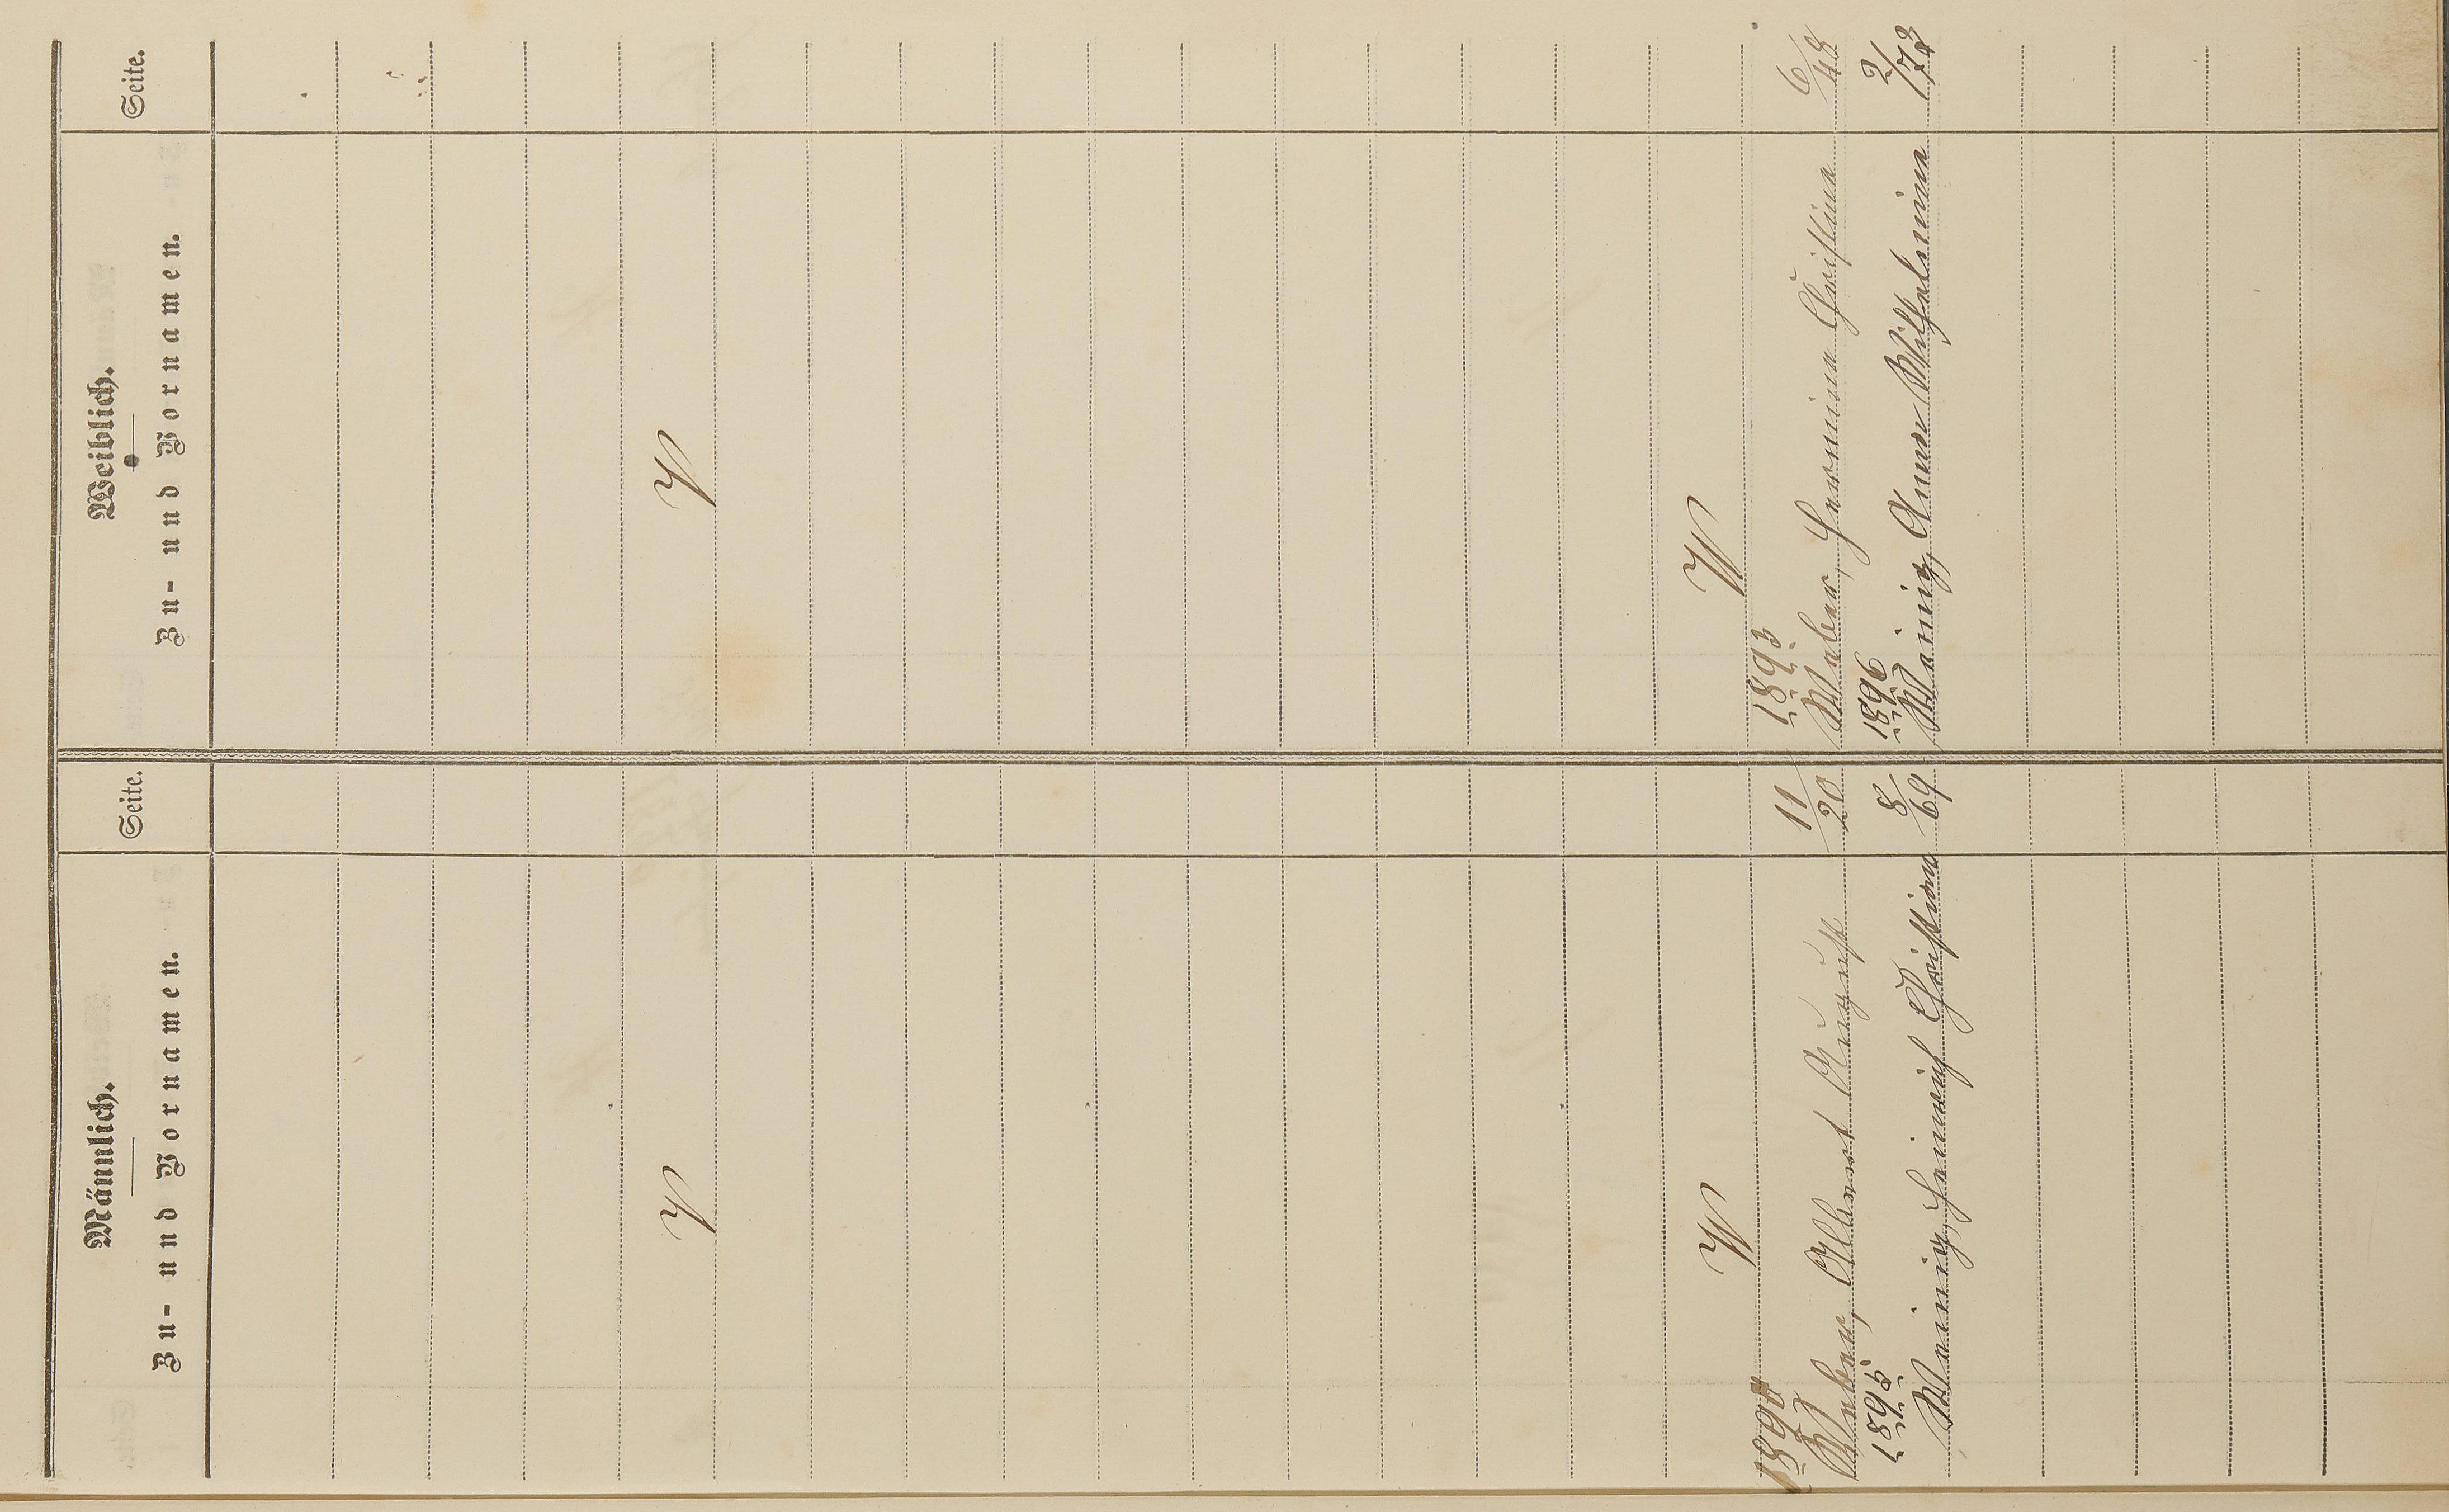 Männlich.
Zu- und Vornamen.
Seite.
Weiblich.
Zu- und Vornamen.
Seite.
V
V
W
W
1890
Weber, Albert August 11/20
1893
Weber, Hermine Christine 6/48
1895
Weinig, Heinrich Christian 8/69
1896
Weinig, Anna Wilhelmine 2/73